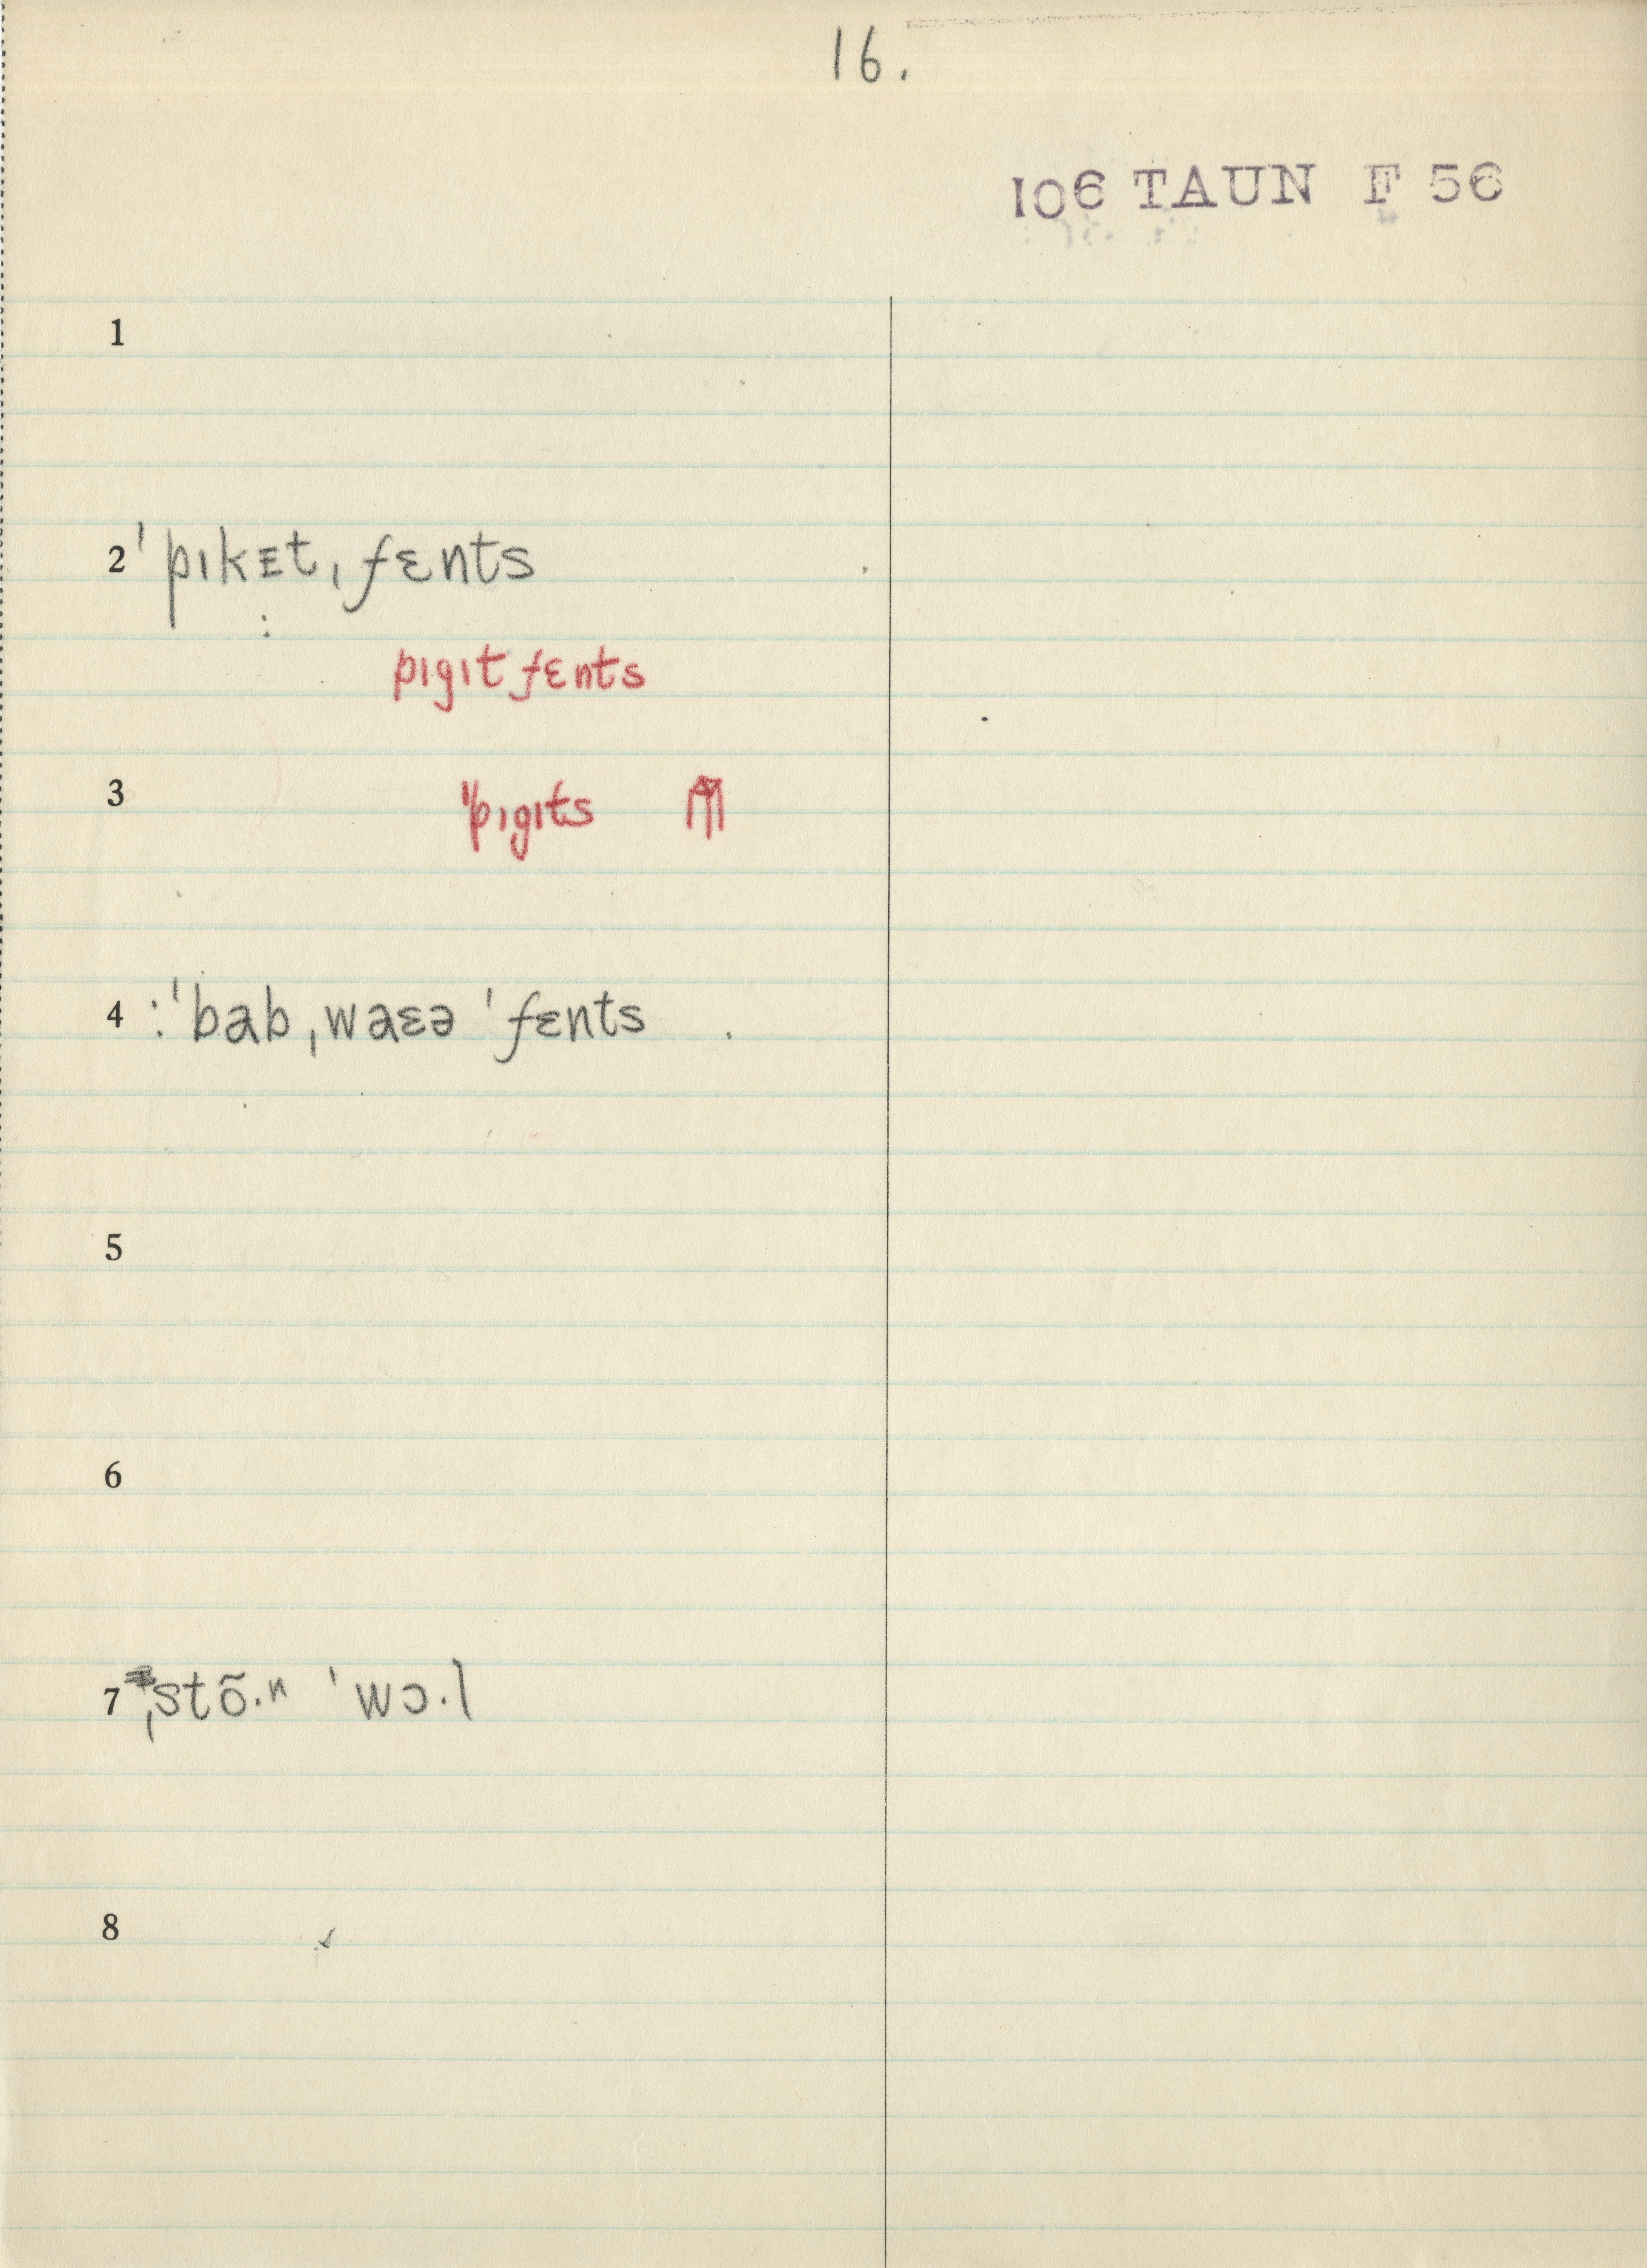 16.
106 TAUN F 56
1
2 ˈpɪkᴇt ˌfɛnts
pɪgɪt fɛnts
3 ˈˈpɪgɪts ⇑
4 :ˈbab ˌwaɛə ˈfɛnts
5
6
7 ˌstõ·ⁿ ˈwɔ·l
8